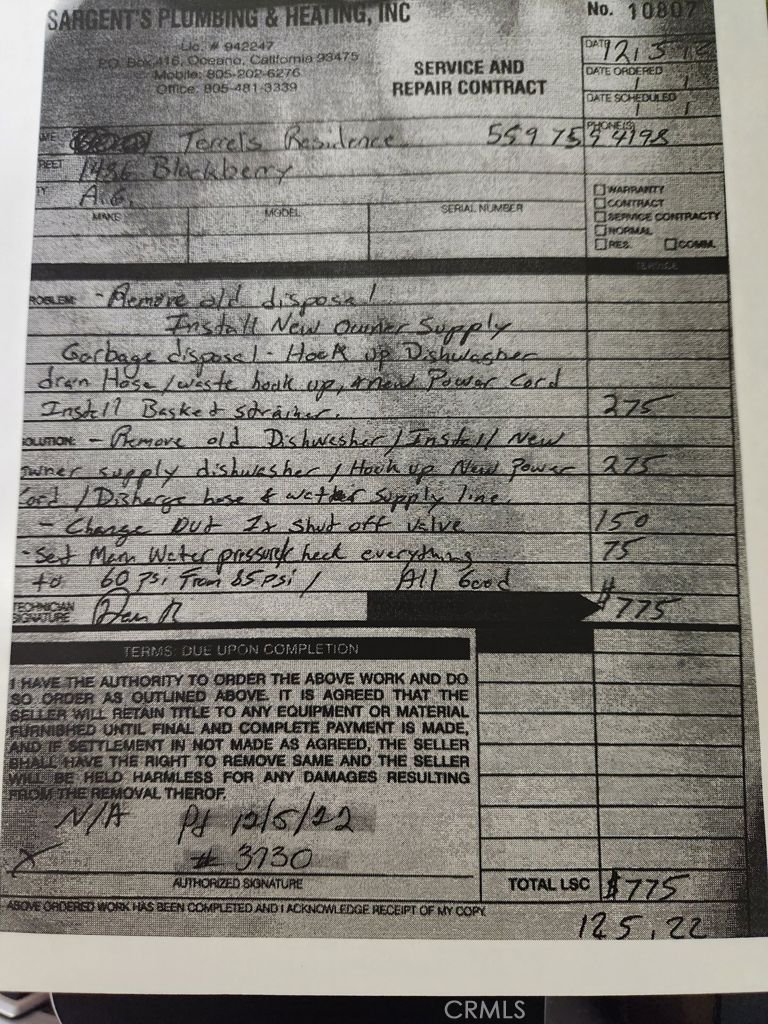 SARGENT'S PLUMBING & HEATING, INC
No. 10807
Lic. # 942247
P.O. Box 416, Oceano, California 93475
Mobile: 805-202-6276
Office: 805-481-3339
SERVICE AND
REPAIR CONTRACT
DATE 12, 5
DATE ORDERED
DATE SCHEDULED
Terrels Residence 559 759 4198
PHONE(S)
1486 Blackberry
A.G.
MAKE MODEL SERIAL NUMBER
WARRANTY
CONTRACT
SERVICE CONTRACTY
NORMAL
RES. COMM.
PROBLEM: - Remove old disposal
Install New Owner Supply
Garbage disposal - Hook up Dishwasher
drain Hose / waste hook up, & new Power Cord
Install Basket strainer. 275
SOLUTION: - Remove old Dishwasher / Install New
owner supply dishwasher / Hook up New Power 275
Cord / Discharge hose & water supply line.
- Change Out 2x shut off valve 150
- Set Main Water pressure / check everything 75
to 60 psi From 85 psi / All Good
TECHNICIAN
SIGNATURE
$775
TERMS: DUE UPON COMPLETION
I HAVE THE AUTHORITY TO ORDER THE ABOVE WORK AND DO
SO ORDER AS OUTLINED ABOVE. IT IS AGREED THAT THE
SELLER WILL RETAIN TITLE TO ANY EQUIPMENT OR MATERIAL
FURNISHED UNTIL FINAL AND COMPLETE PAYMENT IS MADE,
AND IF SETTLEMENT IN NOT MADE AS AGREED, THE SELLER
SHALL HAVE THE RIGHT TO REMOVE SAME AND THE SELLER
WILL BE HELD HARMLESS FOR ANY DAMAGES RESULTING
FROM THE REMOVAL THEROF.
N/A Pd 12/5/22
X # 3730
AUTHORIZED SIGNATURE
TOTAL LSC $775
ABOVE ORDERED WORK HAS BEEN COMPLETED AND I ACKNOWLEDGE RECEIPT OF MY COPY.
12 5, 22
CRMLS